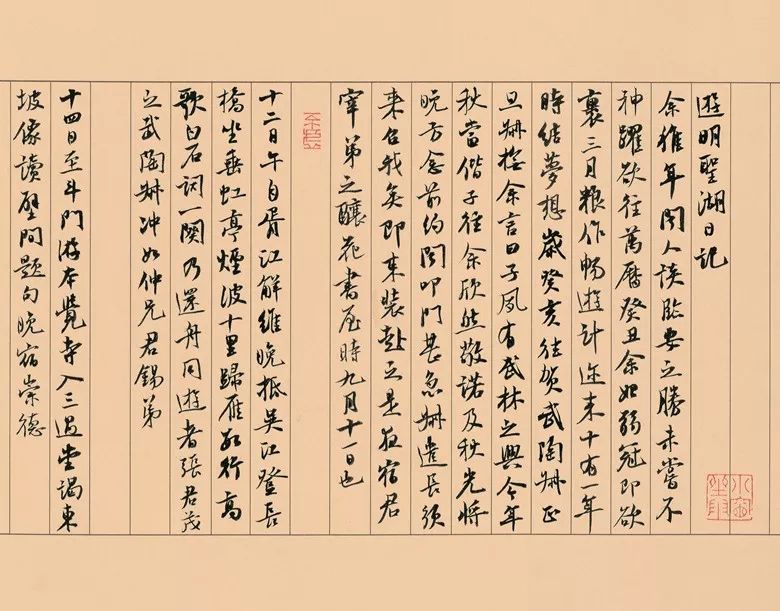 遊明聖湖日記
余稚年聞人談臨安之勝未嘗不
神躍欲往萬曆癸丑余始弱冠即欲
裹三月粮作暢遊計迩来十有一年
時結夢想歲癸亥往賀武陶叔正
旦叔揖余言曰子夙有武林之興今年
秋當偕子往余欣然敬諾及秋光將
晚方念前約聞叩門甚急叔遣長須
来召我矣即束裝赴之是夜宿君
宰弟之釀花書屋時九月十一日也
十二日午自胥江解維晚抵吳江登長
橋坐垂虹亭煙波十里歸雁數行高
歌白石詞一闋乃還舟同遊者張君茂
之武陶叔冲如仲兄君錫弟
十四日至斗門游本覺寺入三過堂謁東
坡像讀壁間題句晚宿崇德